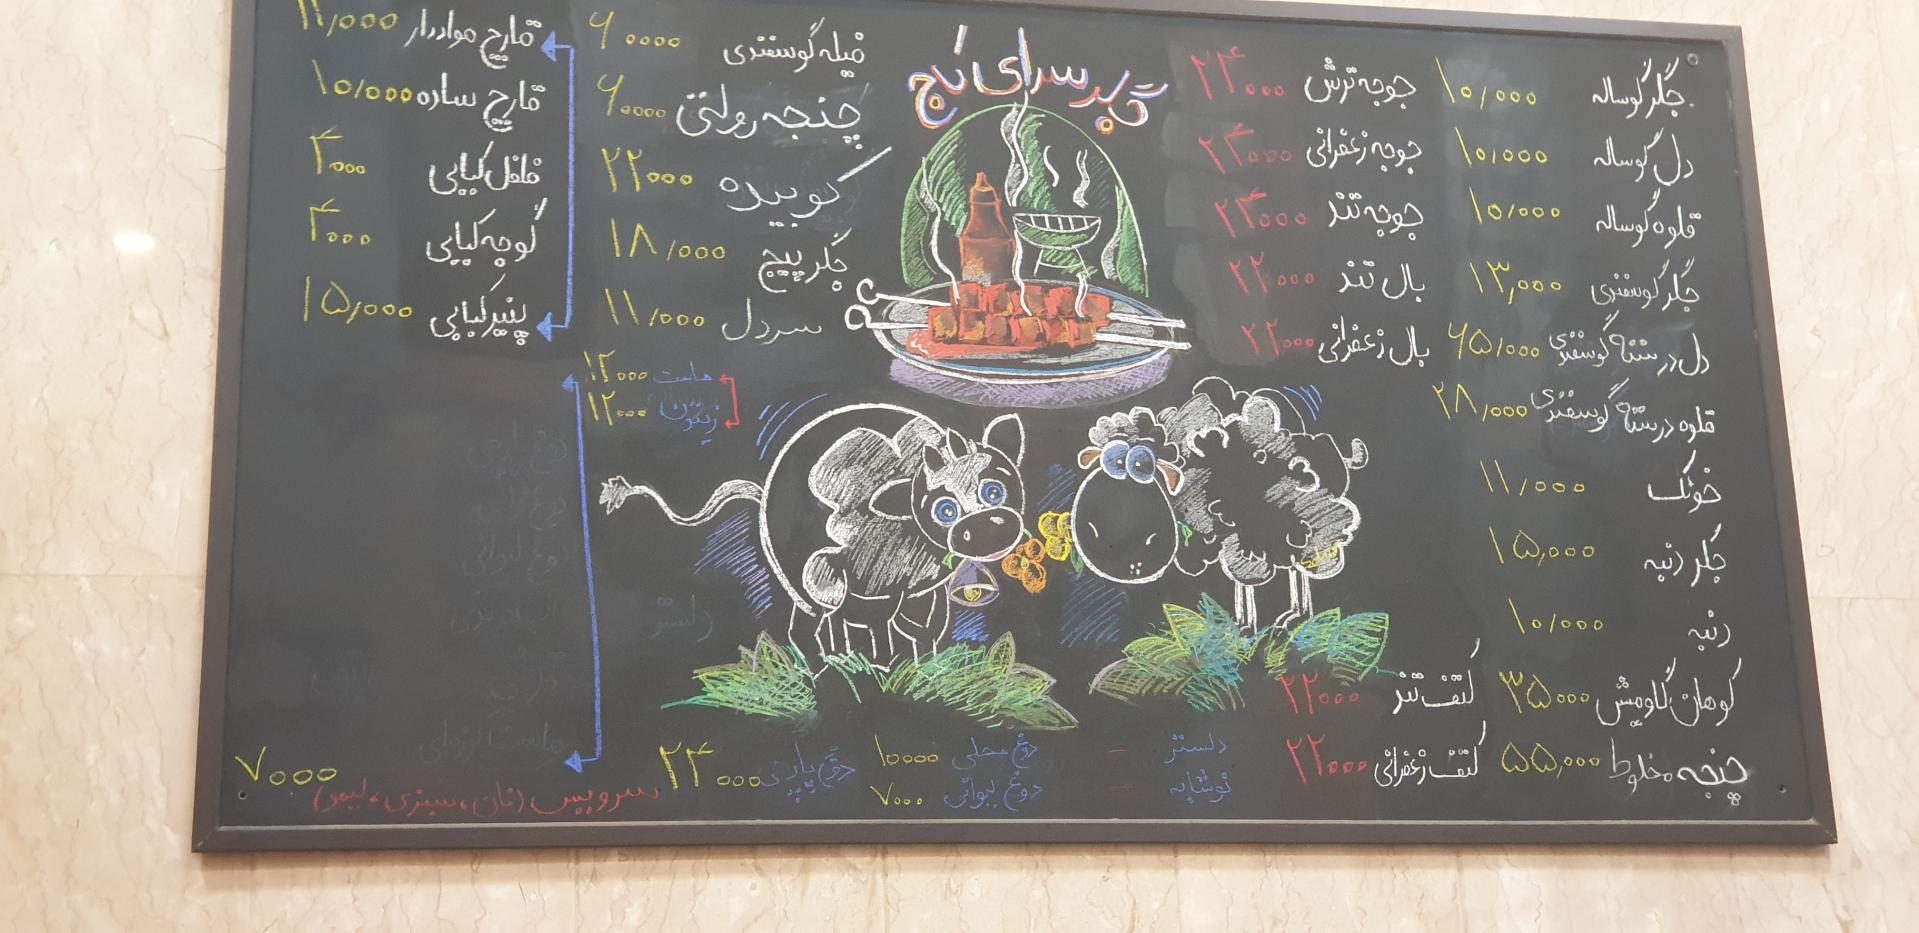 جگر سرای کاج
جگر گوساله ۱۰/۰۰۰
دل گوساله ۱۰/۰۰۰
قلوه گوساله ۱۰/۰۰۰
جگر گوسفندی ۱۳/۰۰۰
دل درسته گوسفندی ۶۵/۰۰۰
قلوه درسته گوسفندی ۲۸/۰۰۰
خوئک ۱۱/۰۰۰
جگر دنبه ۱۵/۰۰۰
دنبه ۱۰/۰۰۰
کوهان گاومیش ۳۵۰۰۰
چنجه مخلوط ۵۵/۰۰۰
جوجه ترش ۲۴۰۰۰
جوجه زعفرانی ۲۴۰۰۰
جوجه تند ۲۴۰۰۰
بال تند ۲۲۰۰۰
بال زعفرانی ۲۲۰۰۰
کتف تند ۲۲۰۰۰
کتف زعفرانی ۲۲۰۰۰
فیله گوسفندی ۶۰۰۰۰
چنجه رولتی ۶۰۰۰۰
کوبیده ۲۲۰۰۰
جگر پیچ ۱۸/۰۰۰
سردل ۱۱/۰۰۰
ماست ۱۲۰۰۰
زیتون ۱۲۰۰۰
قارچ مواددار ۱۱/۰۰۰
قارچ ساده ۱۰/۰۰۰
فلفل کبابی ۴۰۰۰
گوجه کبابی ۴۰۰۰
پنیر کبابی ۱۵/۰۰۰
دلستر –
نوشابه –
دوغ محلی ۱۰۰۰۰
دوغ لیوانی ۷۰۰۰
۲۴۰۰۰
سرویس (نان، سبزی، لیمو) ۷۰۰۰